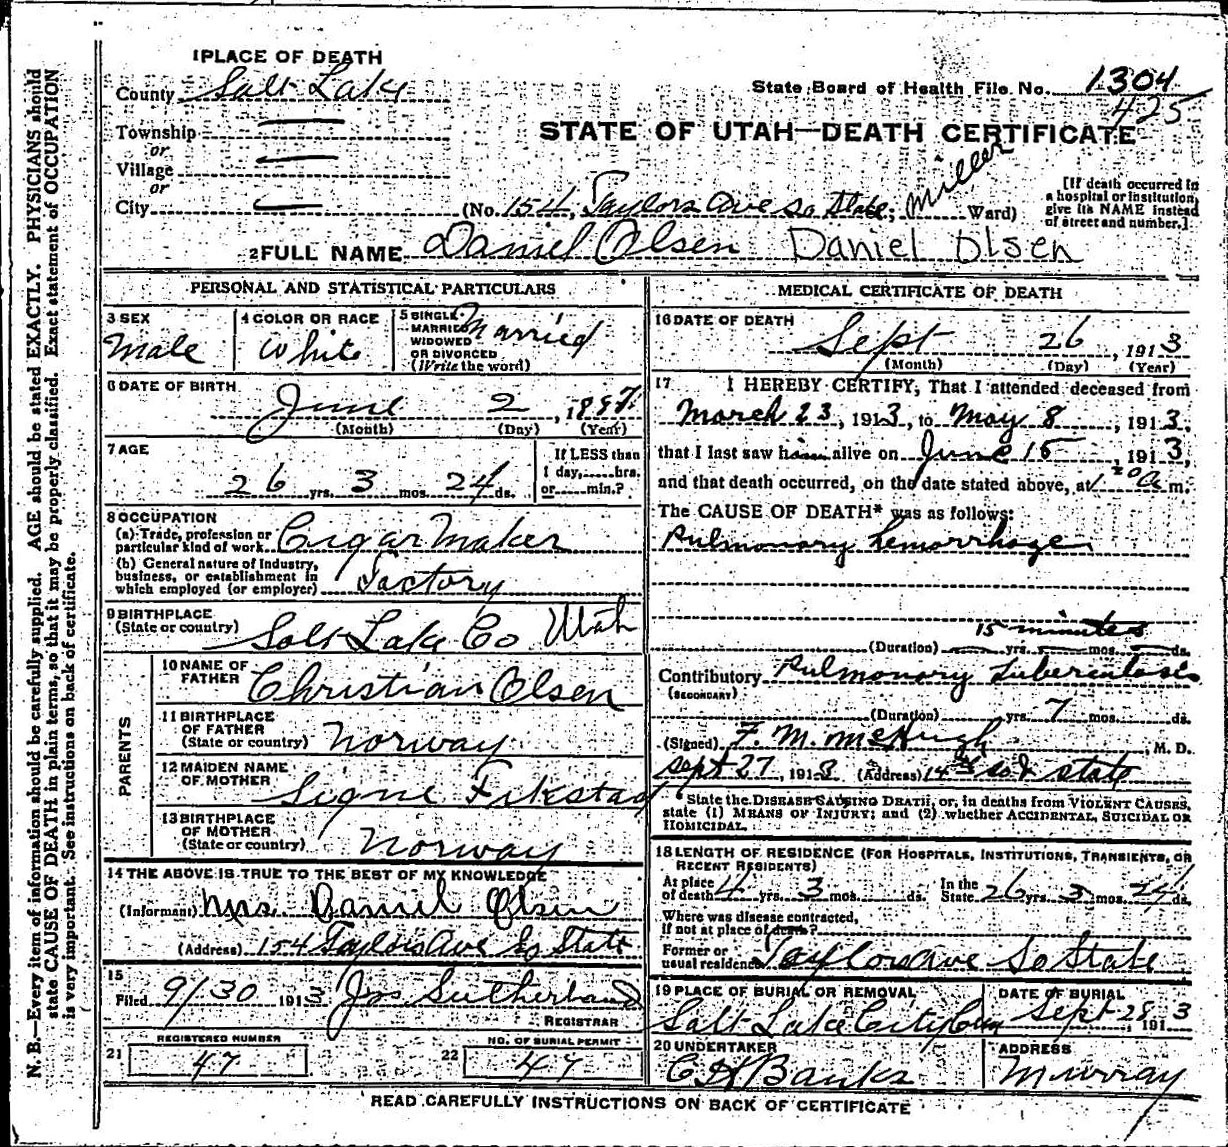 1 PLACE OF DEATH
County Salt Lake
State Board of Health File No. 1304
425
Township
or
Village
or
City
STATE OF UTAH—DEATH CERTIFICATE
(No. 154, Taylors Ave So State; Miller Ward)
[If death occurred in
a hospital or institution,
give its NAME instead
of street and number.]
2 FULL NAME Daniel Olsen Daniel Olsen
PERSONAL AND STATISTICAL PARTICULARS
3 SEX
Male
4 COLOR OR RACE
White
5 SINGLE
MARRIED
WIDOWED
OR DIVORCED
(Write the word)
Married
6 DATE OF BIRTH
June 2, 1887
(Month) (Day) (Year)
7 AGE
26 yrs. 3 mos. 24 ds.
If LESS than
1 day,......hrs.
or......min.?
8 OCCUPATION
(a) Trade, profession or
particular kind of work Cigar Maker
(b) General nature of industry,
business, or establishment in
which employed (or employer) Factory
9 BIRTHPLACE
(State or country) Salt Lake Co Utah
PARENTS
10 NAME OF
FATHER Christian Olsen
11 BIRTHPLACE
OF FATHER
(State or country) Norway
12 MAIDEN NAME
OF MOTHER Signe Fikstad
13 BIRTHPLACE
OF MOTHER
(State or country) Norway
14 THE ABOVE IS TRUE TO THE BEST OF MY KNOWLEDGE
(Informant) Mrs. Daniel Olsen
(Address) 154 Taylors Ave So State
15
Filed 9/30 1913 Jos Sutherland
REGISTRAR
21 REGISTERED NUMBER
47
22 NO. OF BURIAL PERMIT
47
MEDICAL CERTIFICATE OF DEATH
16 DATE OF DEATH
Sept 26, 1913
(Month) (Day) (Year)
17 I HEREBY CERTIFY, That I attended deceased from
March 23, 1913, to May 8, 1913,
that I last saw him alive on June 15, 1913,
and that death occurred, on the date stated above, at 1 20 a m.
The CAUSE OF DEATH* was as follows:
Pulmonary hemorrhage
15 minutes
(Duration) yrs. mos. ds.
Contributory Pulmonary Tuberculosis
(SECONDARY)
(Duration) yrs. 7 mos. ds.
(Signed) F. M. McHugh, M. D.
Sept 27, 1913 (Address) 14th so & state
State the DISEASE CAUSING DEATH, or, in deaths from VIOLENT CAUSES,
state (1) MEANS OF INJURY; and (2) whether ACCIDENTAL, SUICIDAL OR
HOMICIDAL.
18 LENGTH OF RESIDENCE (FOR HOSPITALS, INSTITUTIONS, TRANSIENTS, OR
RECENT RESIDENTS)
At place
of death 4 yrs. 3 mos. ds.
In the
State 26 yrs. 3 mos. 24 ds.
Where was disease contracted,
if not at place of death?
Former or
usual residence Taylors Ave So State
19 PLACE OF BURIAL OR REMOVAL
Salt Lake City Cem
DATE OF BURIAL
Sept 28, 1913
20 UNDERTAKER
C H Banks
ADDRESS
Murray
READ CAREFULLY INSTRUCTIONS ON BACK OF CERTIFICATE
N. B.—Every item of information should be carefully supplied. AGE should be stated EXACTLY. PHYSICIANS should
state CAUSE OF DEATH in plain terms, so that it may be properly classified. Exact statement of OCCUPATION
is very important. See instructions on back of certificate.